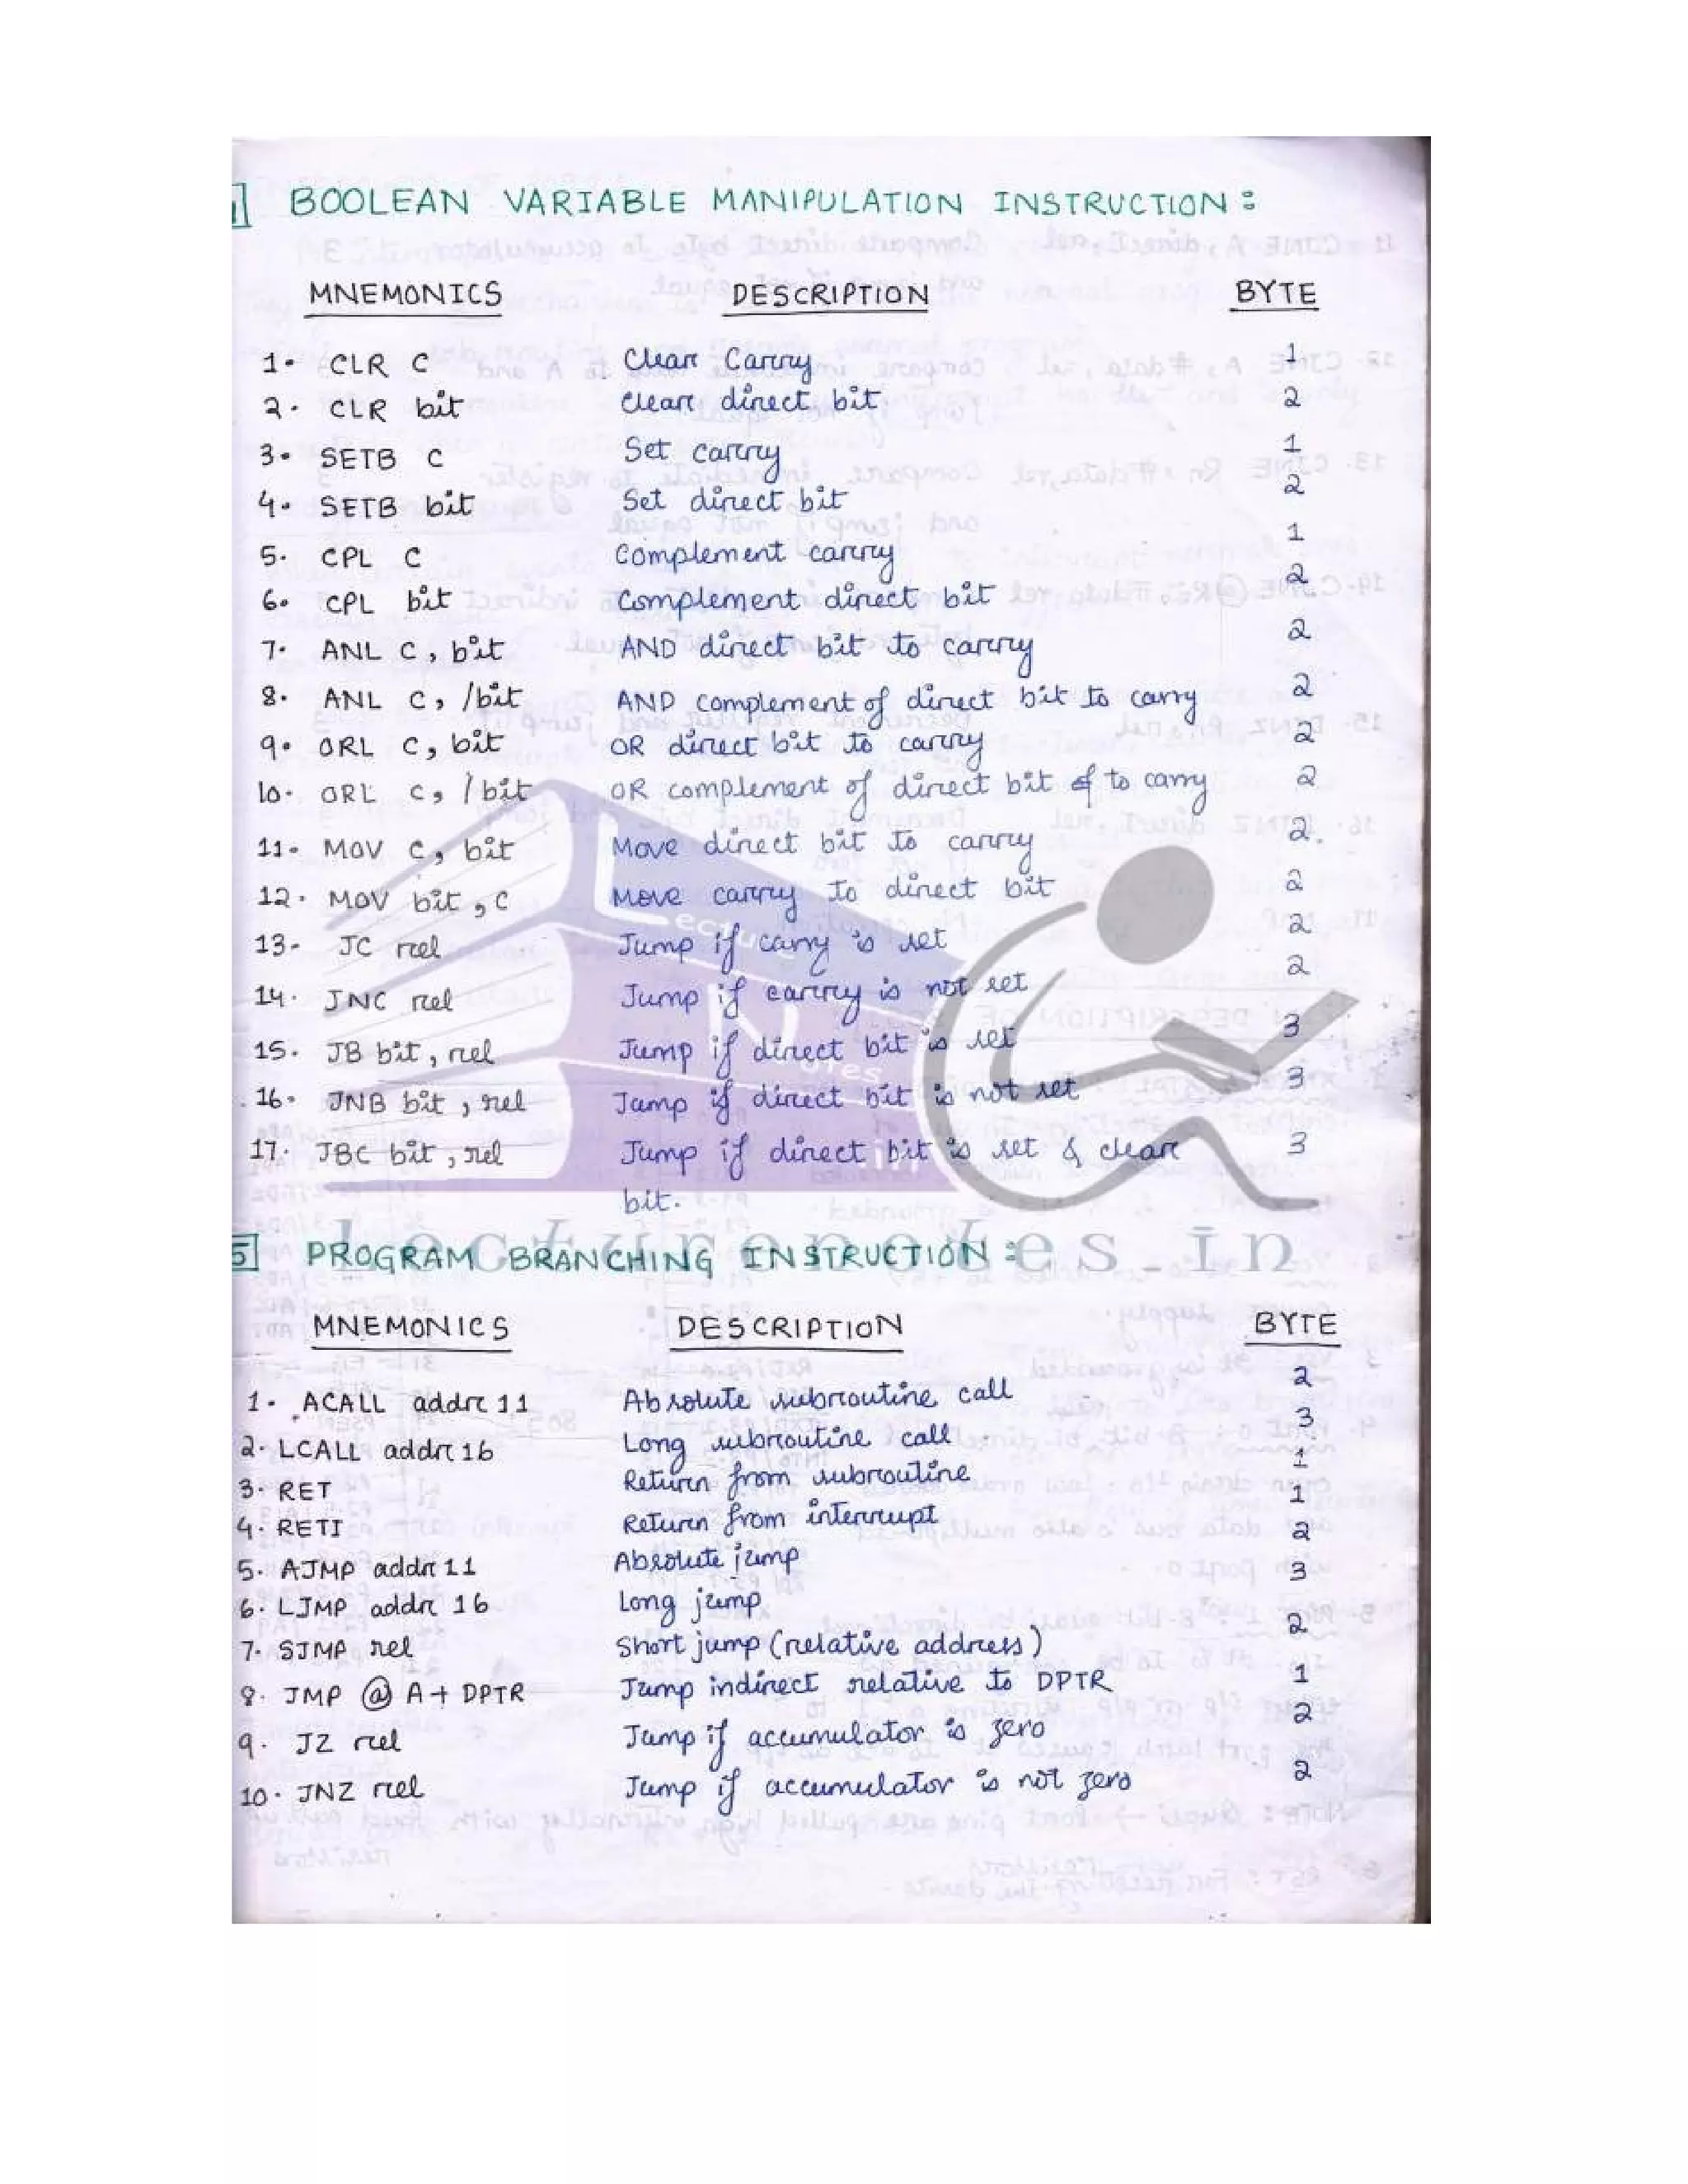 BOOLEAN VARIABLE MANIPULATION INSTRUCTION :
MNEMONICS DESCRIPTION BYTE
1. CLR C Clear Carry 1
2. CLR bit Clear direct bit 2
3. SETB C Set carry 1
4. SETB bit Set direct bit 2
5. CPL C Complement carry 1
6. CPL bit Complement direct bit 2
7. ANL C, bit AND direct bit to carry 2
8. ANL C, /bit AND complement of direct bit to carry 2
9. ORL C, bit OR direct bit to carry 2
10. ORL C, /bit OR complement of direct bit to carry 2
11. MOV C, bit Move direct bit to carry 2.
12. MOV bit, C Move carry to direct bit 2
13. JC rel Jump if carry is set 2
14. JNC rel Jump if carry is not set 2
15. JB bit, rel Jump if direct bit is set 3
16. JNB bit, rel Jump if direct bit is not set 3
17. JBC bit, rel Jump if direct bit is set & clear 3
bit.
Lecture Notes.in
lecturenotes.in
5 PROGRAM BRANCHING INSTRUCTION :
MNEMONICS DESCRIPTION BYTE
1. ACALL addr 11 Absolute subroutine call 2
2. LCALL addr 16 Long subroutine call 3
3. RET Return from subroutine 1
4. RETI Return from interrupt 1
5. AJMP addr 11 Absolute jump 2
6. LJMP addr 16 Long jump 3
7. SJMP rel Short jump (relative address) 2
8. JMP @ A + DPTR Jump indirect relative to DPTR 1
9. JZ rel Jump if accumulator is zero 2
10. JNZ rel Jump if accumulator is not zero 2